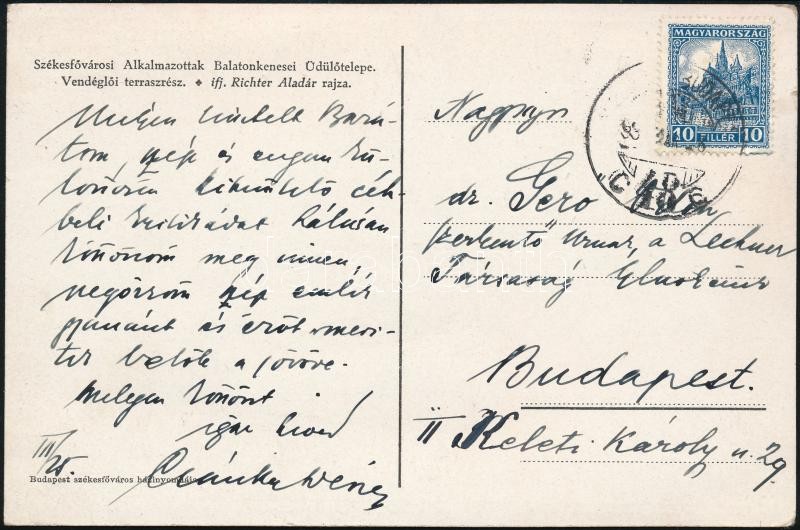 Székesfővárosi Alkalmazottak Balatonkenesei Üdülőtelepe.
Vendéglői terraszrész. ✦ ifj. Richter Aladár rajza.
Mélyen tisztelt Bará-
tom, szép és engem ki-
tűnően kitüntető cik-
beli kritikádat hálásan
köszönöm meg innen,
megőrzöm szép emlék
gyanánt és erőt merí-
tek belőle a jövőre.
Melegen köszönt
igaz híved
III/25.
Budapest székesfőváros házinyomdája
MAGYARORSZÁG
10 FILLÉR 10
Nagys.
dr. Gerő Ödön
szerkesztő Urnak, a Lechner
Társaság Elnökének
Budapest.
II Keleti Károly u. 29.